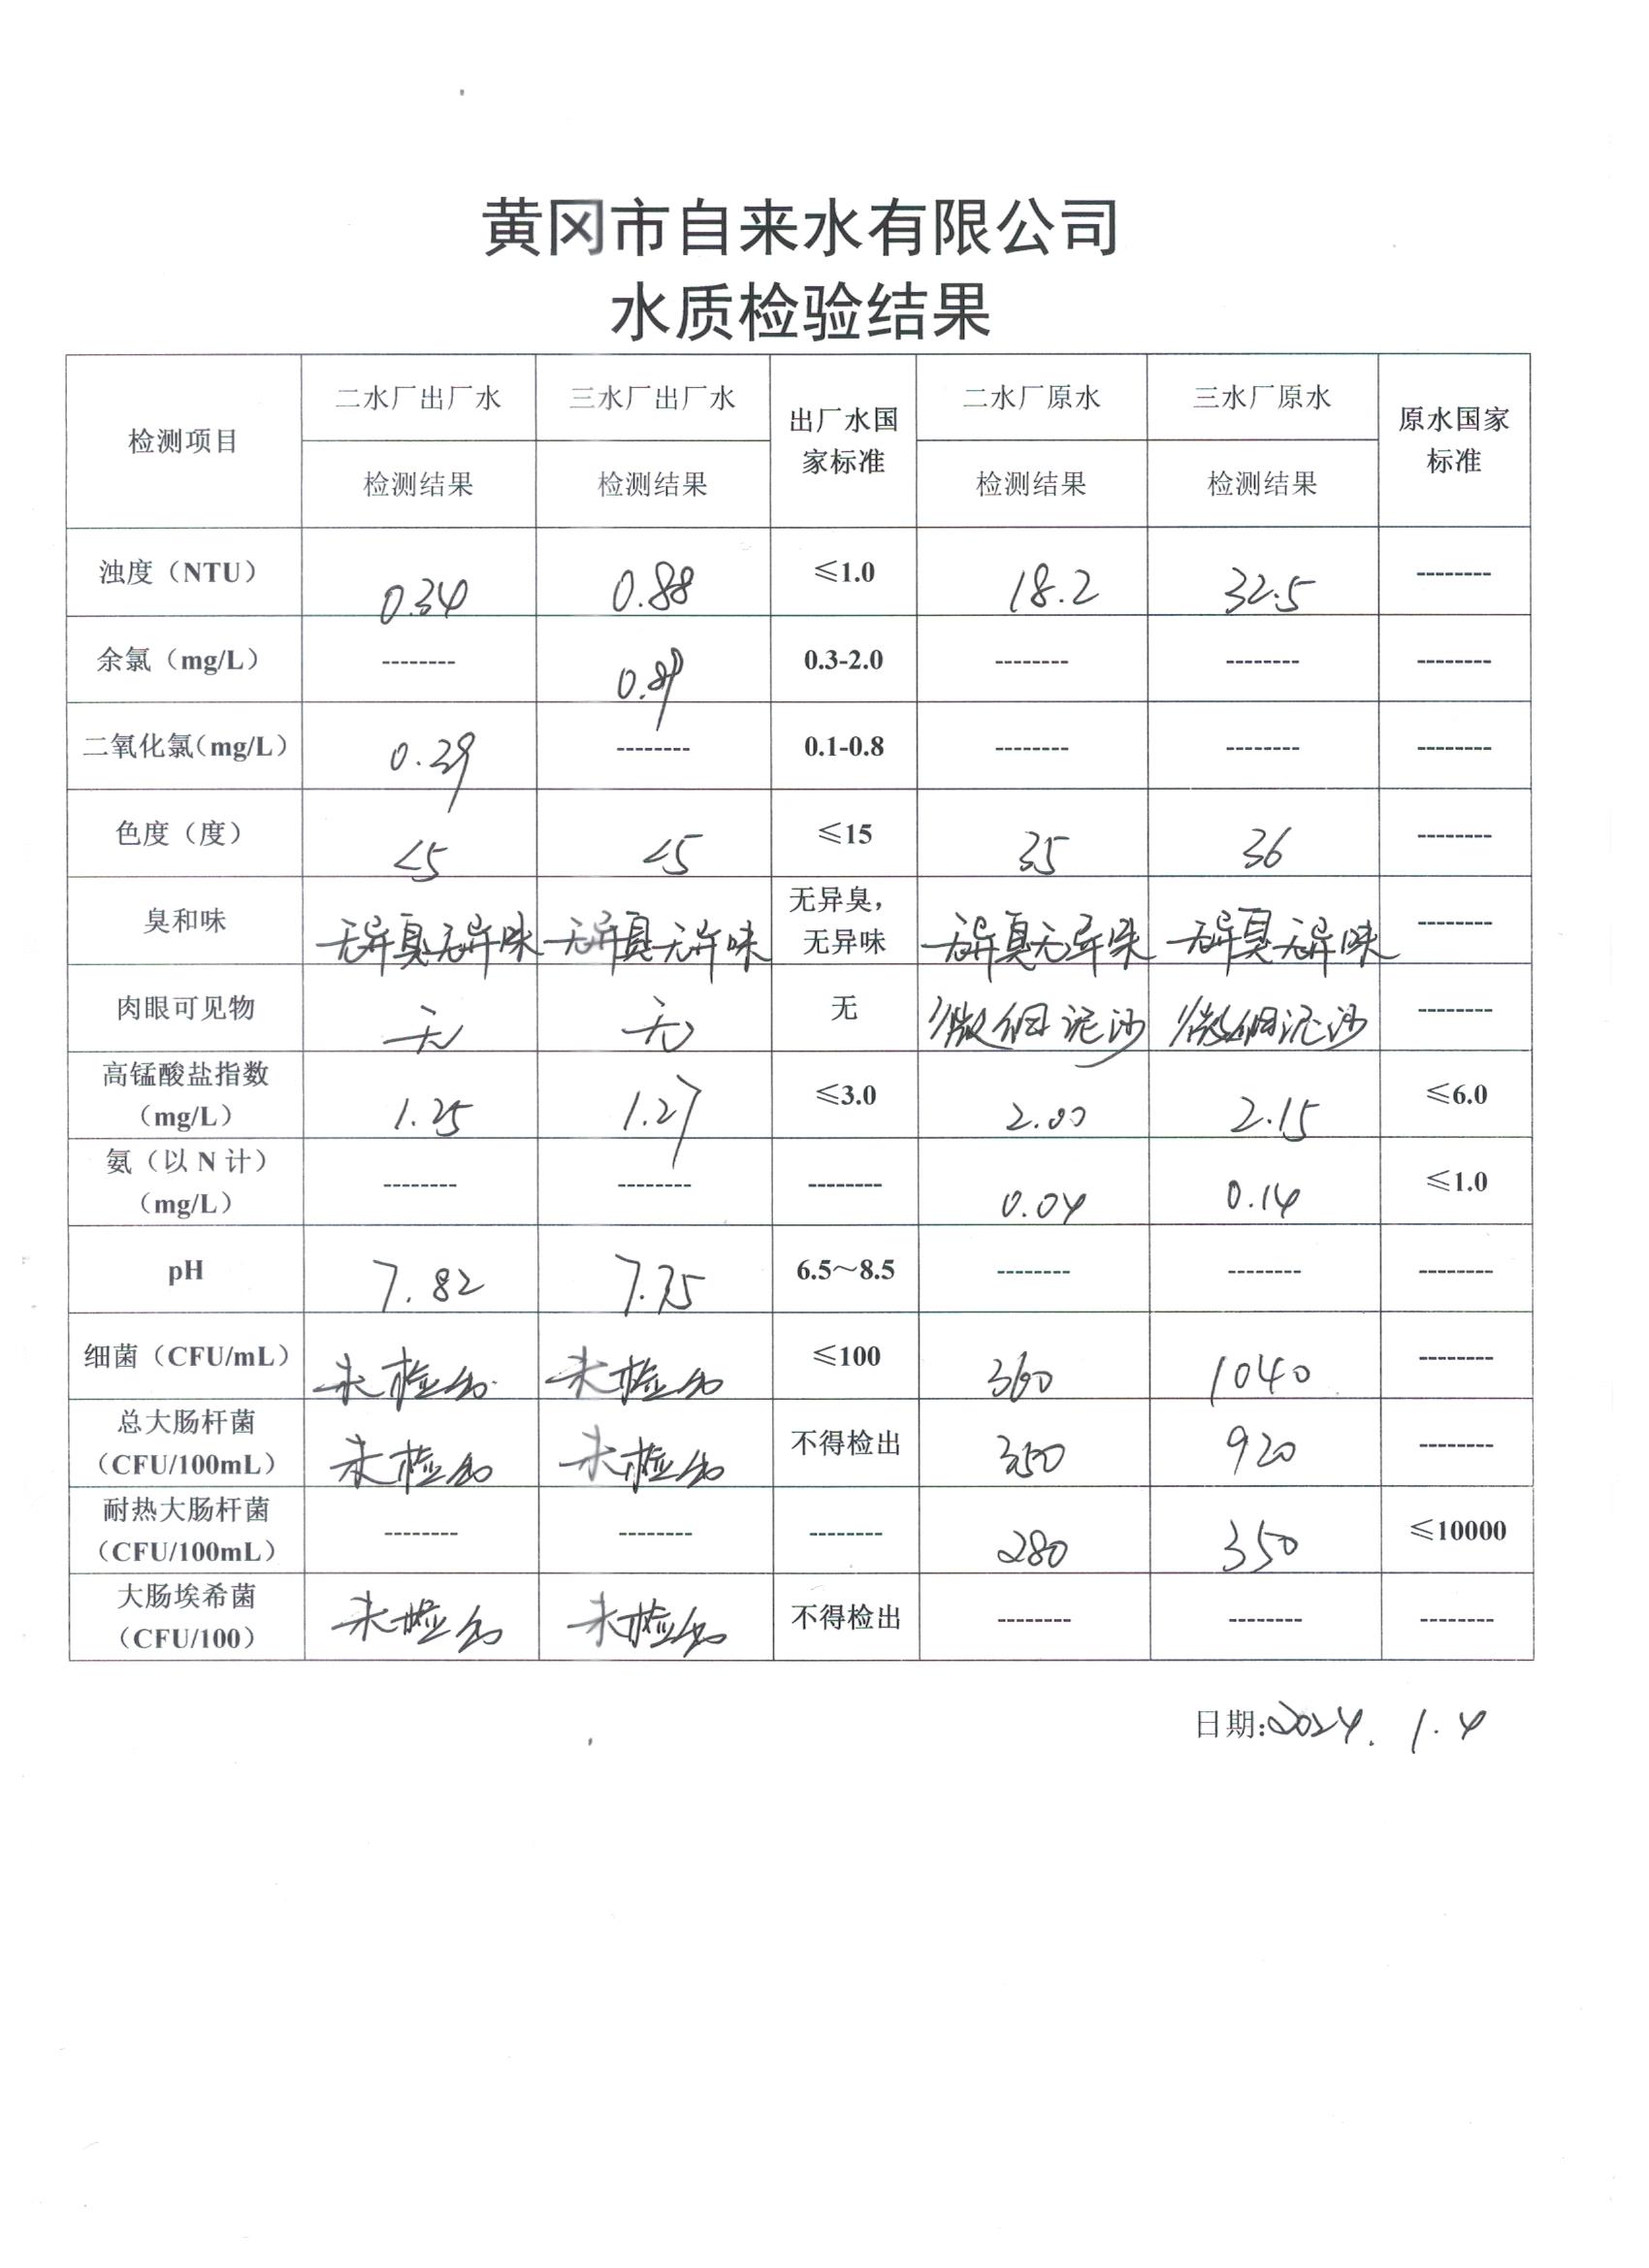 黄冈市自来水有限公司
水质检验结果
检测项目 二水厂出厂水 三水厂出厂水 出厂水国家标准 二水厂原水 三水厂原水 原水国家标准
检测结果 检测结果 检测结果 检测结果
浊度（NTU） 0.34 0.88 ≤1.0 18.2 32.5 --------
余氯（mg/L） -------- 0.89 0.3-2.0 -------- -------- --------
二氧化氯（mg/L） 0.29 -------- 0.1-0.8 -------- -------- --------
色度（度） <5 <5 ≤15 35 36 --------
臭和味 无异臭无异味 无异臭无异味 无异臭，无异味 无异臭无异味 无异臭无异味 --------
肉眼可见物 无 无 无 微细泥沙 微细泥沙 --------
高锰酸盐指数（mg/L） 1.25 1.27 ≤3.0 2.00 2.15 ≤6.0
氨（以N计）（mg/L） -------- -------- -------- 0.04 0.14 ≤1.0
pH 7.82 7.75 6.5～8.5 -------- -------- --------
细菌（CFU/mL） 未检出 未检出 ≤100 360 1040 --------
总大肠杆菌（CFU/100mL） 未检出 未检出 不得检出 350 920 --------
耐热大肠杆菌（CFU/100mL） -------- -------- -------- 280 350 ≤10000
大肠埃希菌（CFU/100） 未检出 未检出 不得检出 -------- -------- --------
日期:2024.1.4